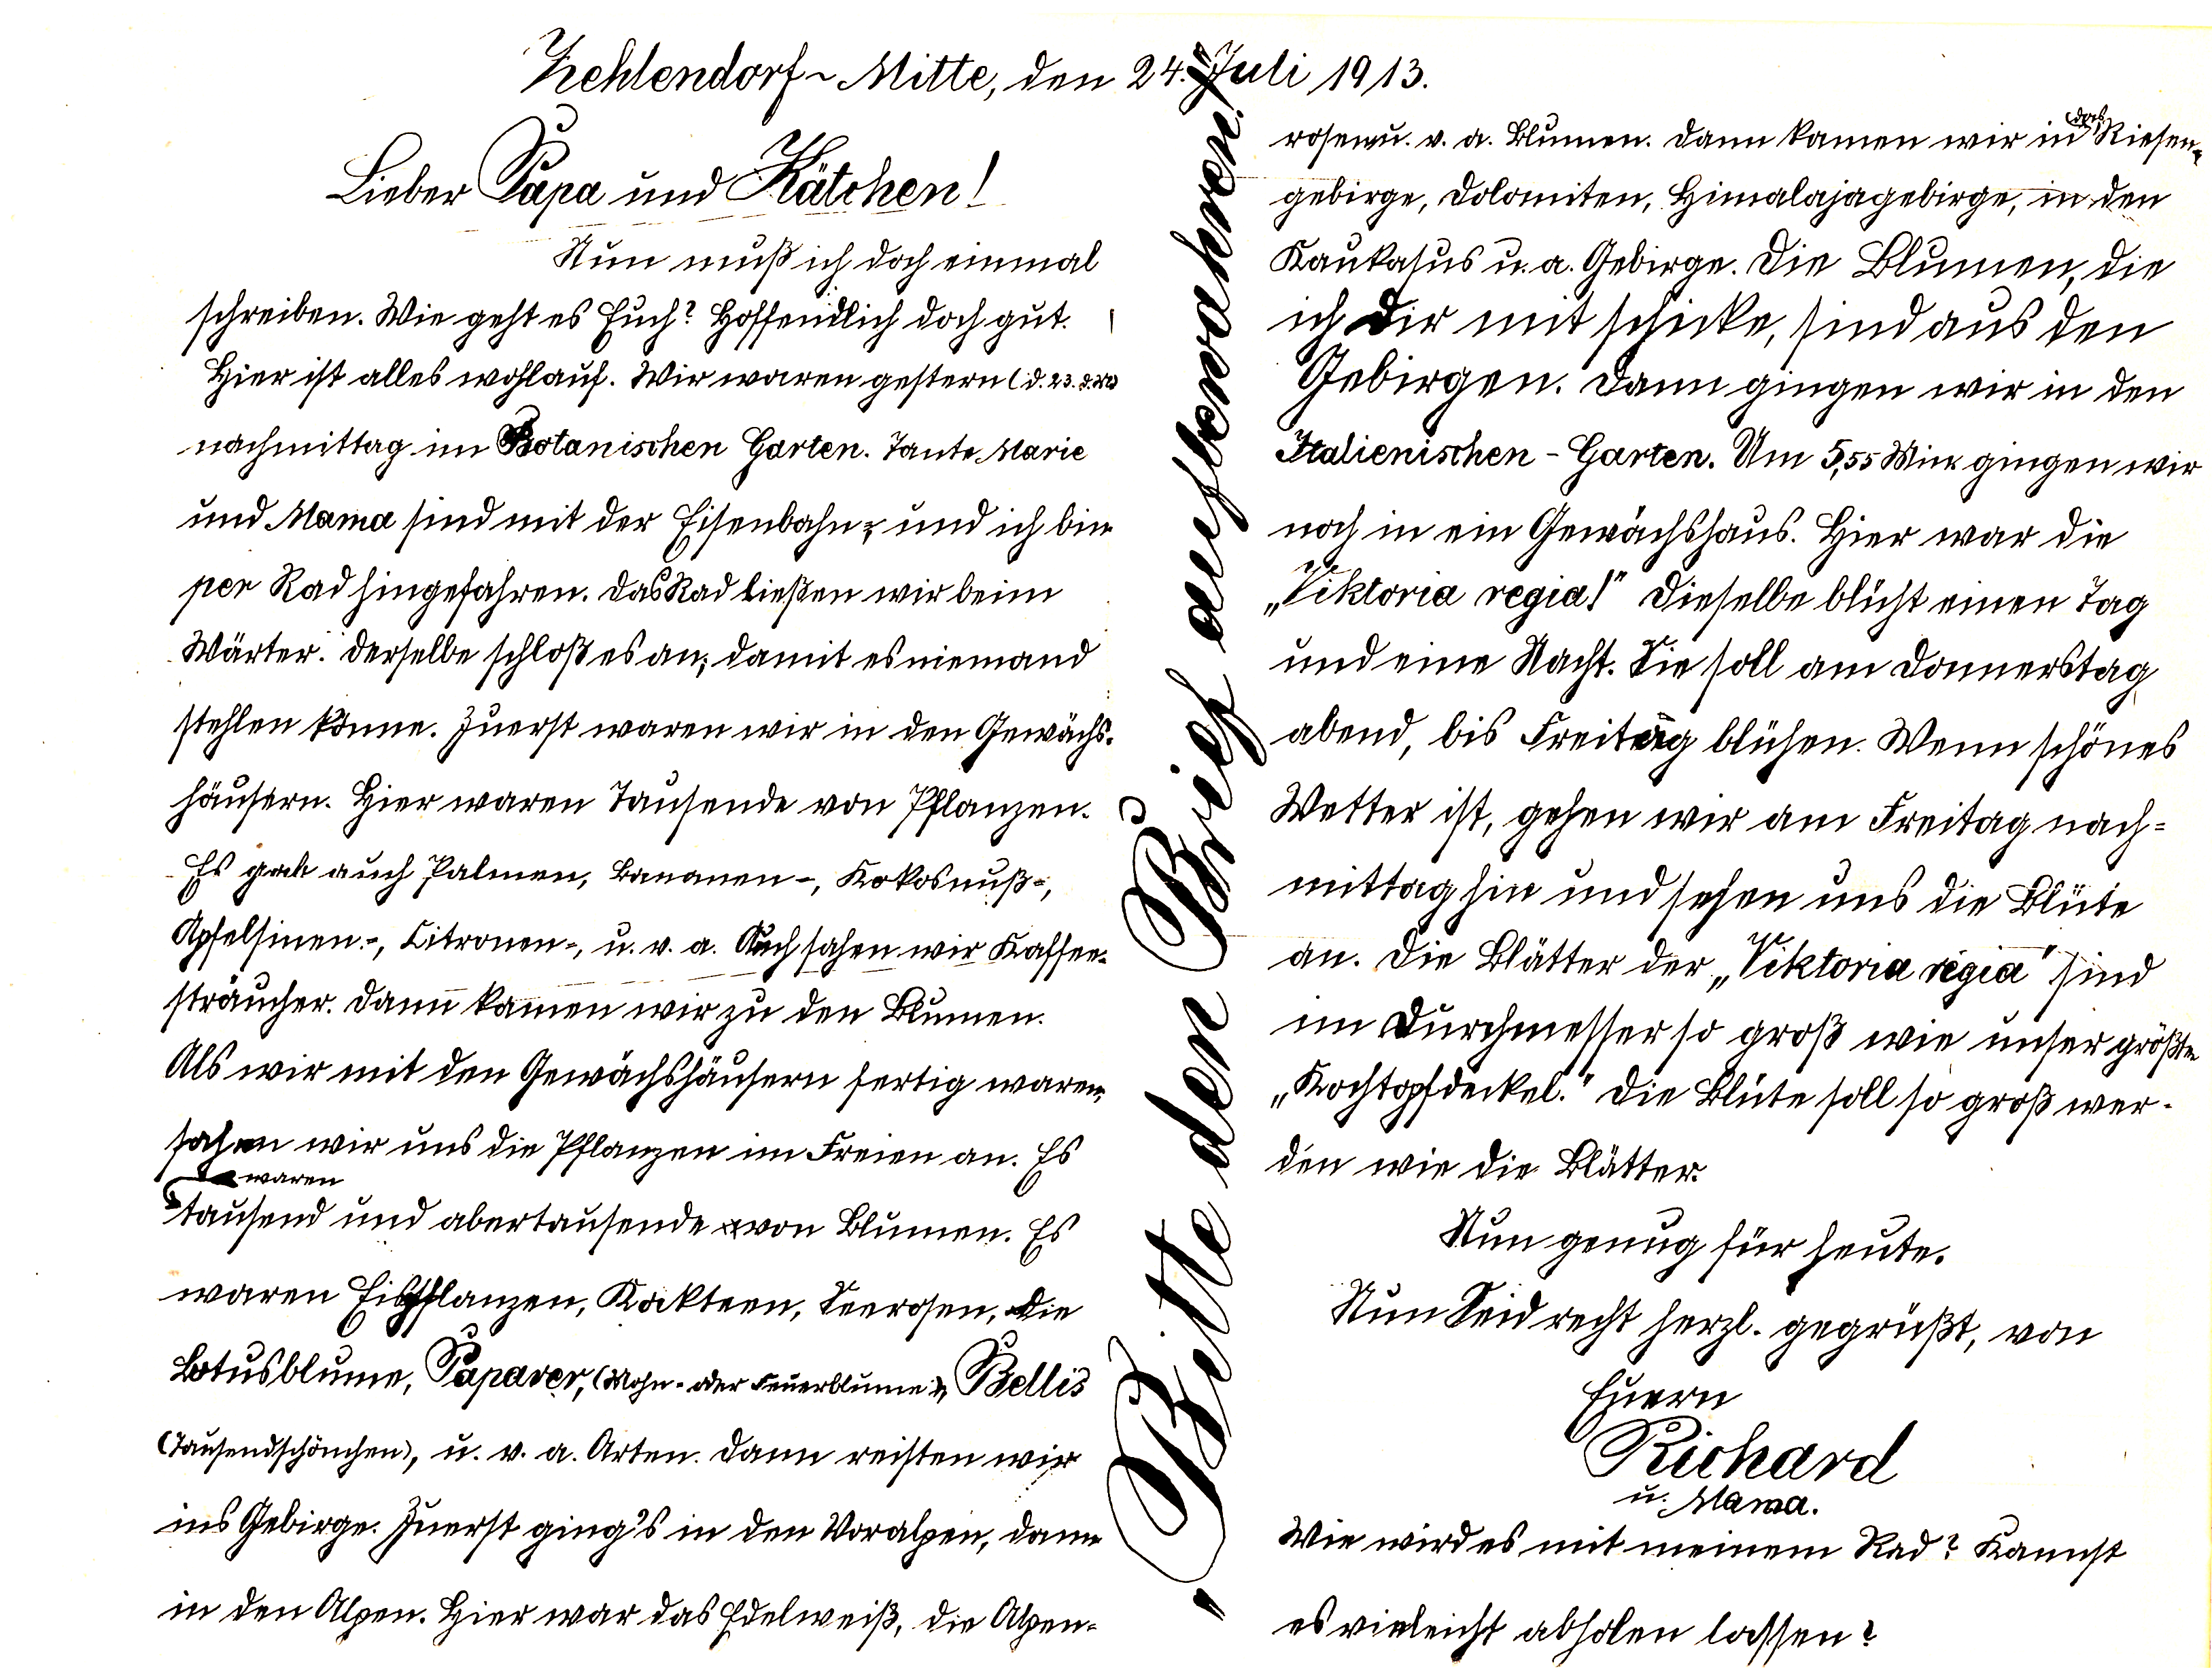 Zehlendorf-Mitte, den 24. Juli 1913.
Lieber Papa und Kätchen!
Nun muß ich doch einmal
schreiben. Wie geht es Euch? Hoffendlich doch gut.
Hier ist alles wohlauf. Wir waren gestern (d. 23. d. M.)
nachmittag im Botanischen Garten. Tante Marie
und Mama sind mit der Eisenbahn, und ich bin
per Rad hingefahren. Das Rad ließen wir beim
Wärter. Derselbe schloß es an, damit es niemand
stehlen könne. Zuerst waren wir in den Gewächs-
häusern. Hier waren Tausende von Pflanzen.
Es gab auch Palmen, Bananen-, Kokosnuß-,
Apfelsinen-, Citronen-, u. v. a. Auch sahen wir Kaffee-
sträucher. Dann kamen wir zu den Blumen.
Als wir mit den Gewächshäusern fertig waren,
sahen wir uns die Pflanzen im Freien an. Es
waren
tausend und abertausende von Blumen. Es
waren Eispflanzen, Kakteen, Seerosen, die
Lotusblume, Papaver, (Mohn- oder Feuerblume), Bellis
(Tausendschönchen), u. v. a. Arten. Dann reisten wir
ins Gebirge. Zuerst ging's in den Voralpen, dann
in den Alpen. Hier war das Edelweiß, die Alpen-
„Bitte den Brief aufbewahren!"
rosen u. v. a. Blumen. Dann kamen wir in das Riesen-
gebirge, Dolomiten, Himalajagebirge, in den
Kaukasus u. a. Gebirge. Die Blumen, die
ich Dir mit schicke, sind aus den
Gebirgen. Dann gingen wir in den
Italienischen-Garten. Um 5,55 Min gingen wir
noch in ein Gewächshaus. Hier war die
„Viktoria regia!" Dieselbe blüht einen Tag
und eine Nacht. Sie soll am Donnerstag
abend, bis Freitag blühen. Wenn schönes
Wetter ist, gehen wir am Freitag nach-
mittag hin und sehen uns die Blüte
an. Die Blätter der „Viktoria regia" sind
im Durchmesser so groß wie unser größte
„Kochtopfdeckel." Die Blüte soll so groß wer-
den wie die Blätter.
Nun genug für heute.
Nun Seid recht herzl. gegrüßt, von
Euern
Richard
u. Mama.
Wie wird es mit meinem Rad? Kannst
es vieleicht abholen lassen?